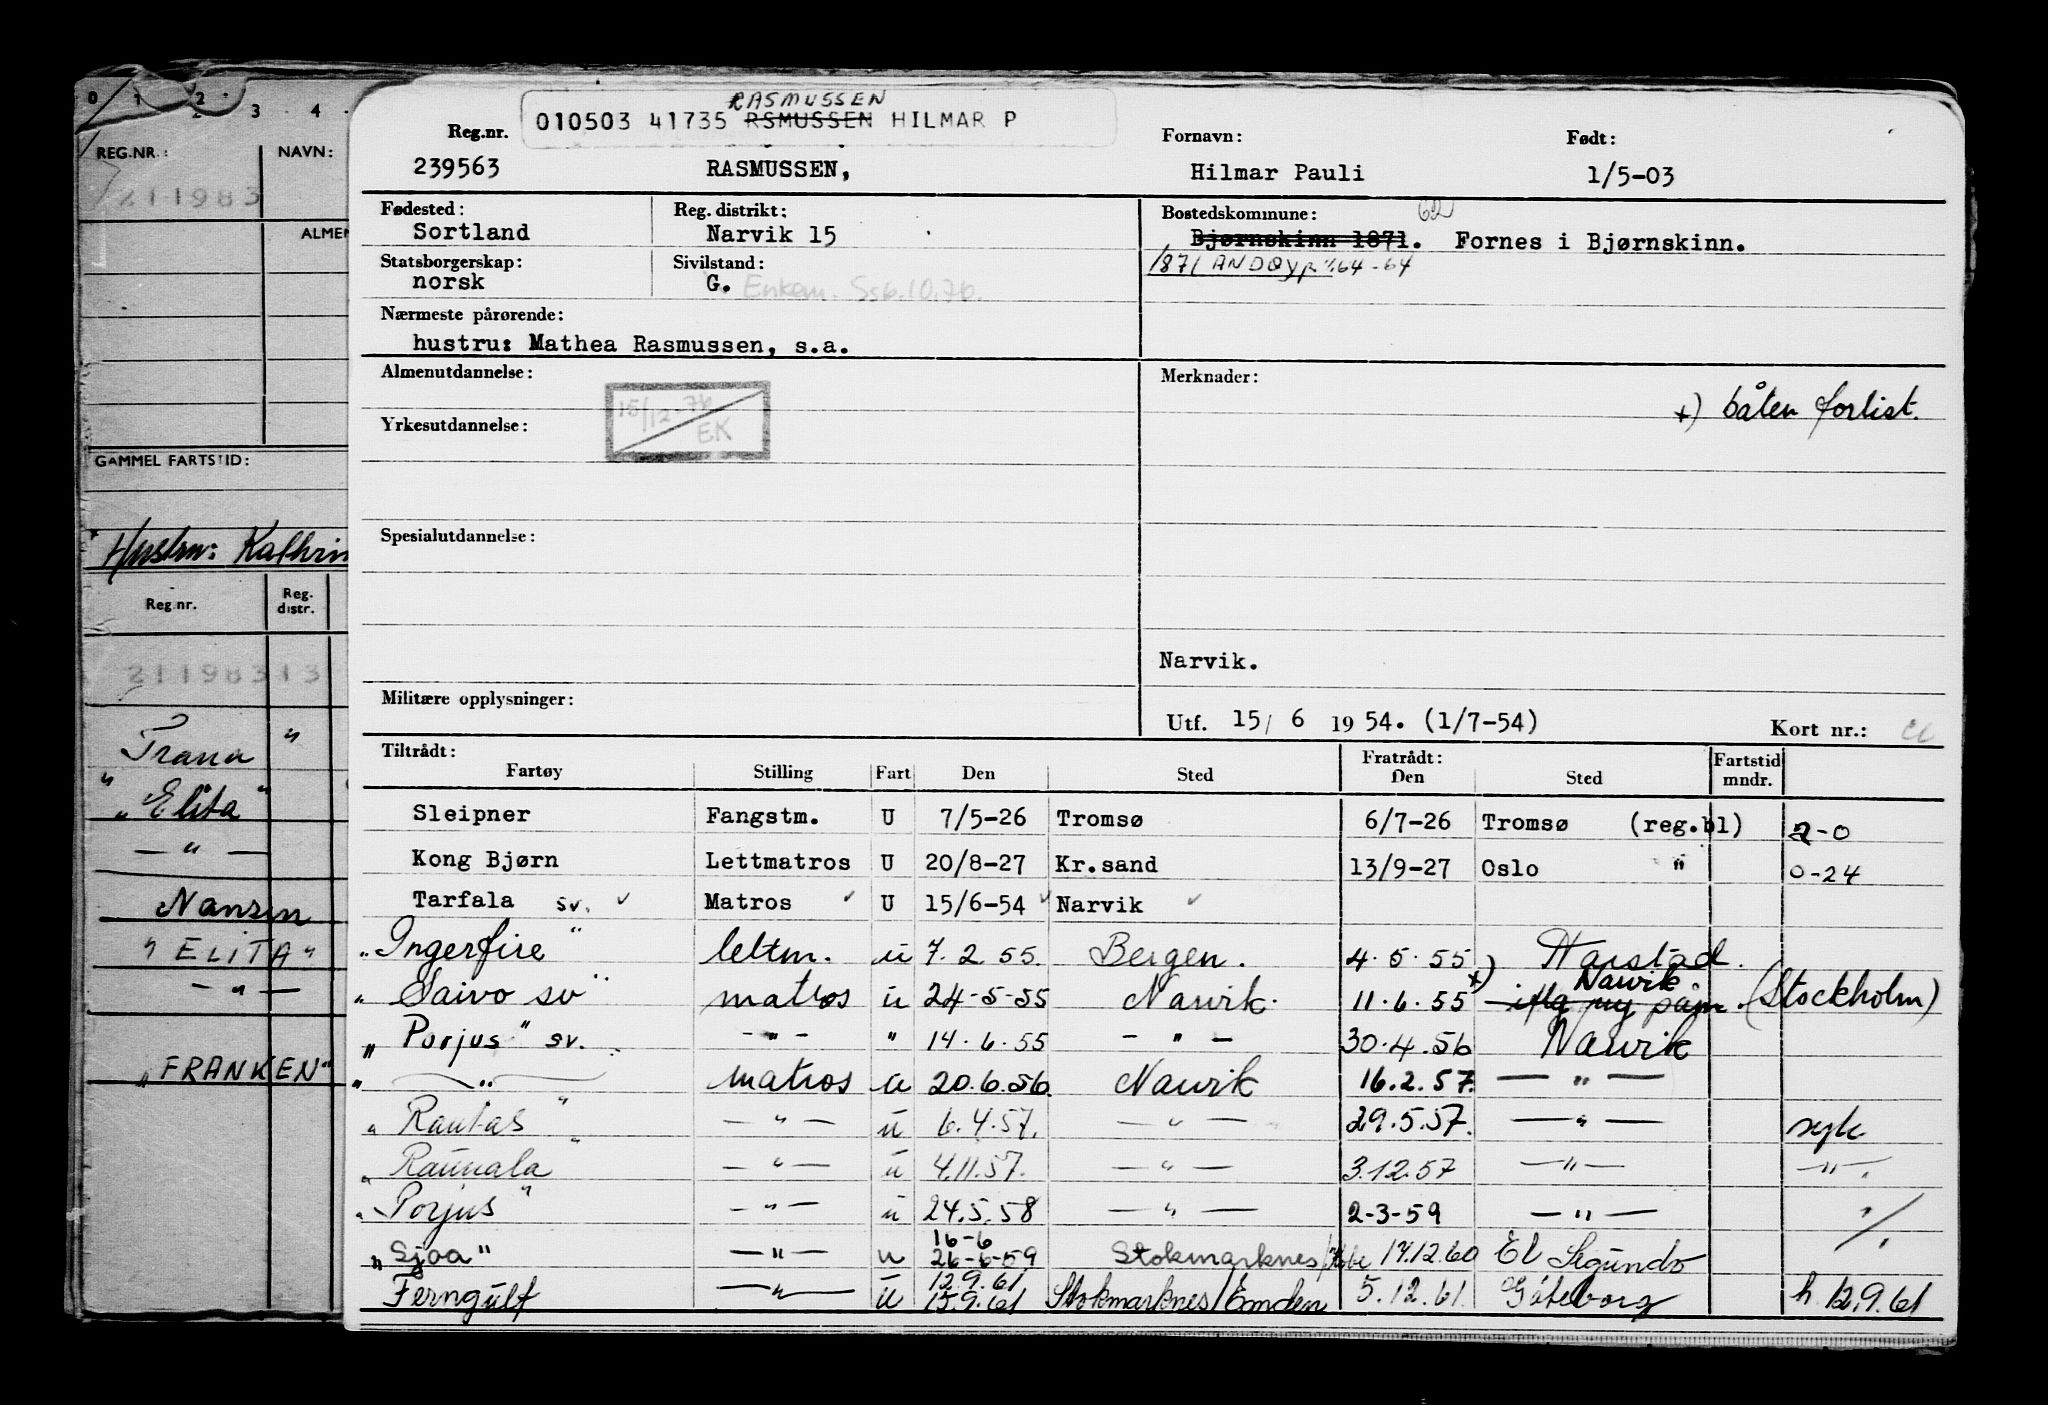 0 1 2 3 4
REG.NR.: NAVN:
211983
ALMEN
GAMMEL FARTSTID:
Hustru: Kathrin
Reg.nr. Reg. distr.
211983 13
Trana "
" "Elita"
— " —
Nansen
"ELITA"
— " —
"FRANKEN"
RASMUSSEN
Reg.nr. 010503 41735 RSMUSSEN HILMAR P Fornavn: Født:
239563 RASMUSSEN, Hilmar Pauli 1/5-03
Fødested: Reg. distrikt: Bostedskommune: 62
Sortland Narvik 15 Bjørnskinn 1871. Fornes i Bjørnskinn.
Statsborgerskap: Sivilstand: 1871 ANDØY 64-64
norsk G. Enkem. Ss6.10.76.
Nærmeste pårørende:
hustru: Mathea Rasmussen, s.a.
Almenutdannelse: Merknader:
15/12-76 x) båten forlist.
Yrkesutdannelse: EK
Spesialutdannelse:
Narvik.
Militære opplysninger:
Utf. 15/ 6 1954. (1/7-54) Kort nr.:
Tiltrådt: Fratrådt: Fartstid
Fartøy Stilling Fart Den Sted Den Sted mndr.
Sleipner Fangstm. U 7/5-26 Tromsø 6/7-26 Tromsø (reg.bl) 2-0
Kong Bjørn Lettmatros U 20/8-27 Kr.sand 13/9-27 Oslo " 0-24
Tarfala sv. Matros U 15/6-54 Narvik
"Ingerfire" lettm. u 7.2.55. Bergen. 4.5.55 Harstad.
"Saivo sv" matros u 24-5-55 Narvik. 11.6.55 x) Narvik (Stockholm)
"Porjus" sv. — " — " 14.6.55 — " — 30.4.56 Narvik
" — " — matros u 20.6.56. Narvik 16.2.57. — " —
"Rautas" — " — u 6.4.57. — " — 29.5.57. — " — syk
"Raunala" — " — u 4.11.57. — " — 3.12.57 — " — — " —
"Porjus" — " — u 24.5.58 — " — 2-3-59 — " — "
16-6
"Sjoa" — " — u 26-6-59 Stokmarknes/ 17.12.60 El Segundo
12.9.61
Ferngulf — " — u 15.9.61 Stokmarknes/Emden 5.12.61. Göteborg h. 12.9.61